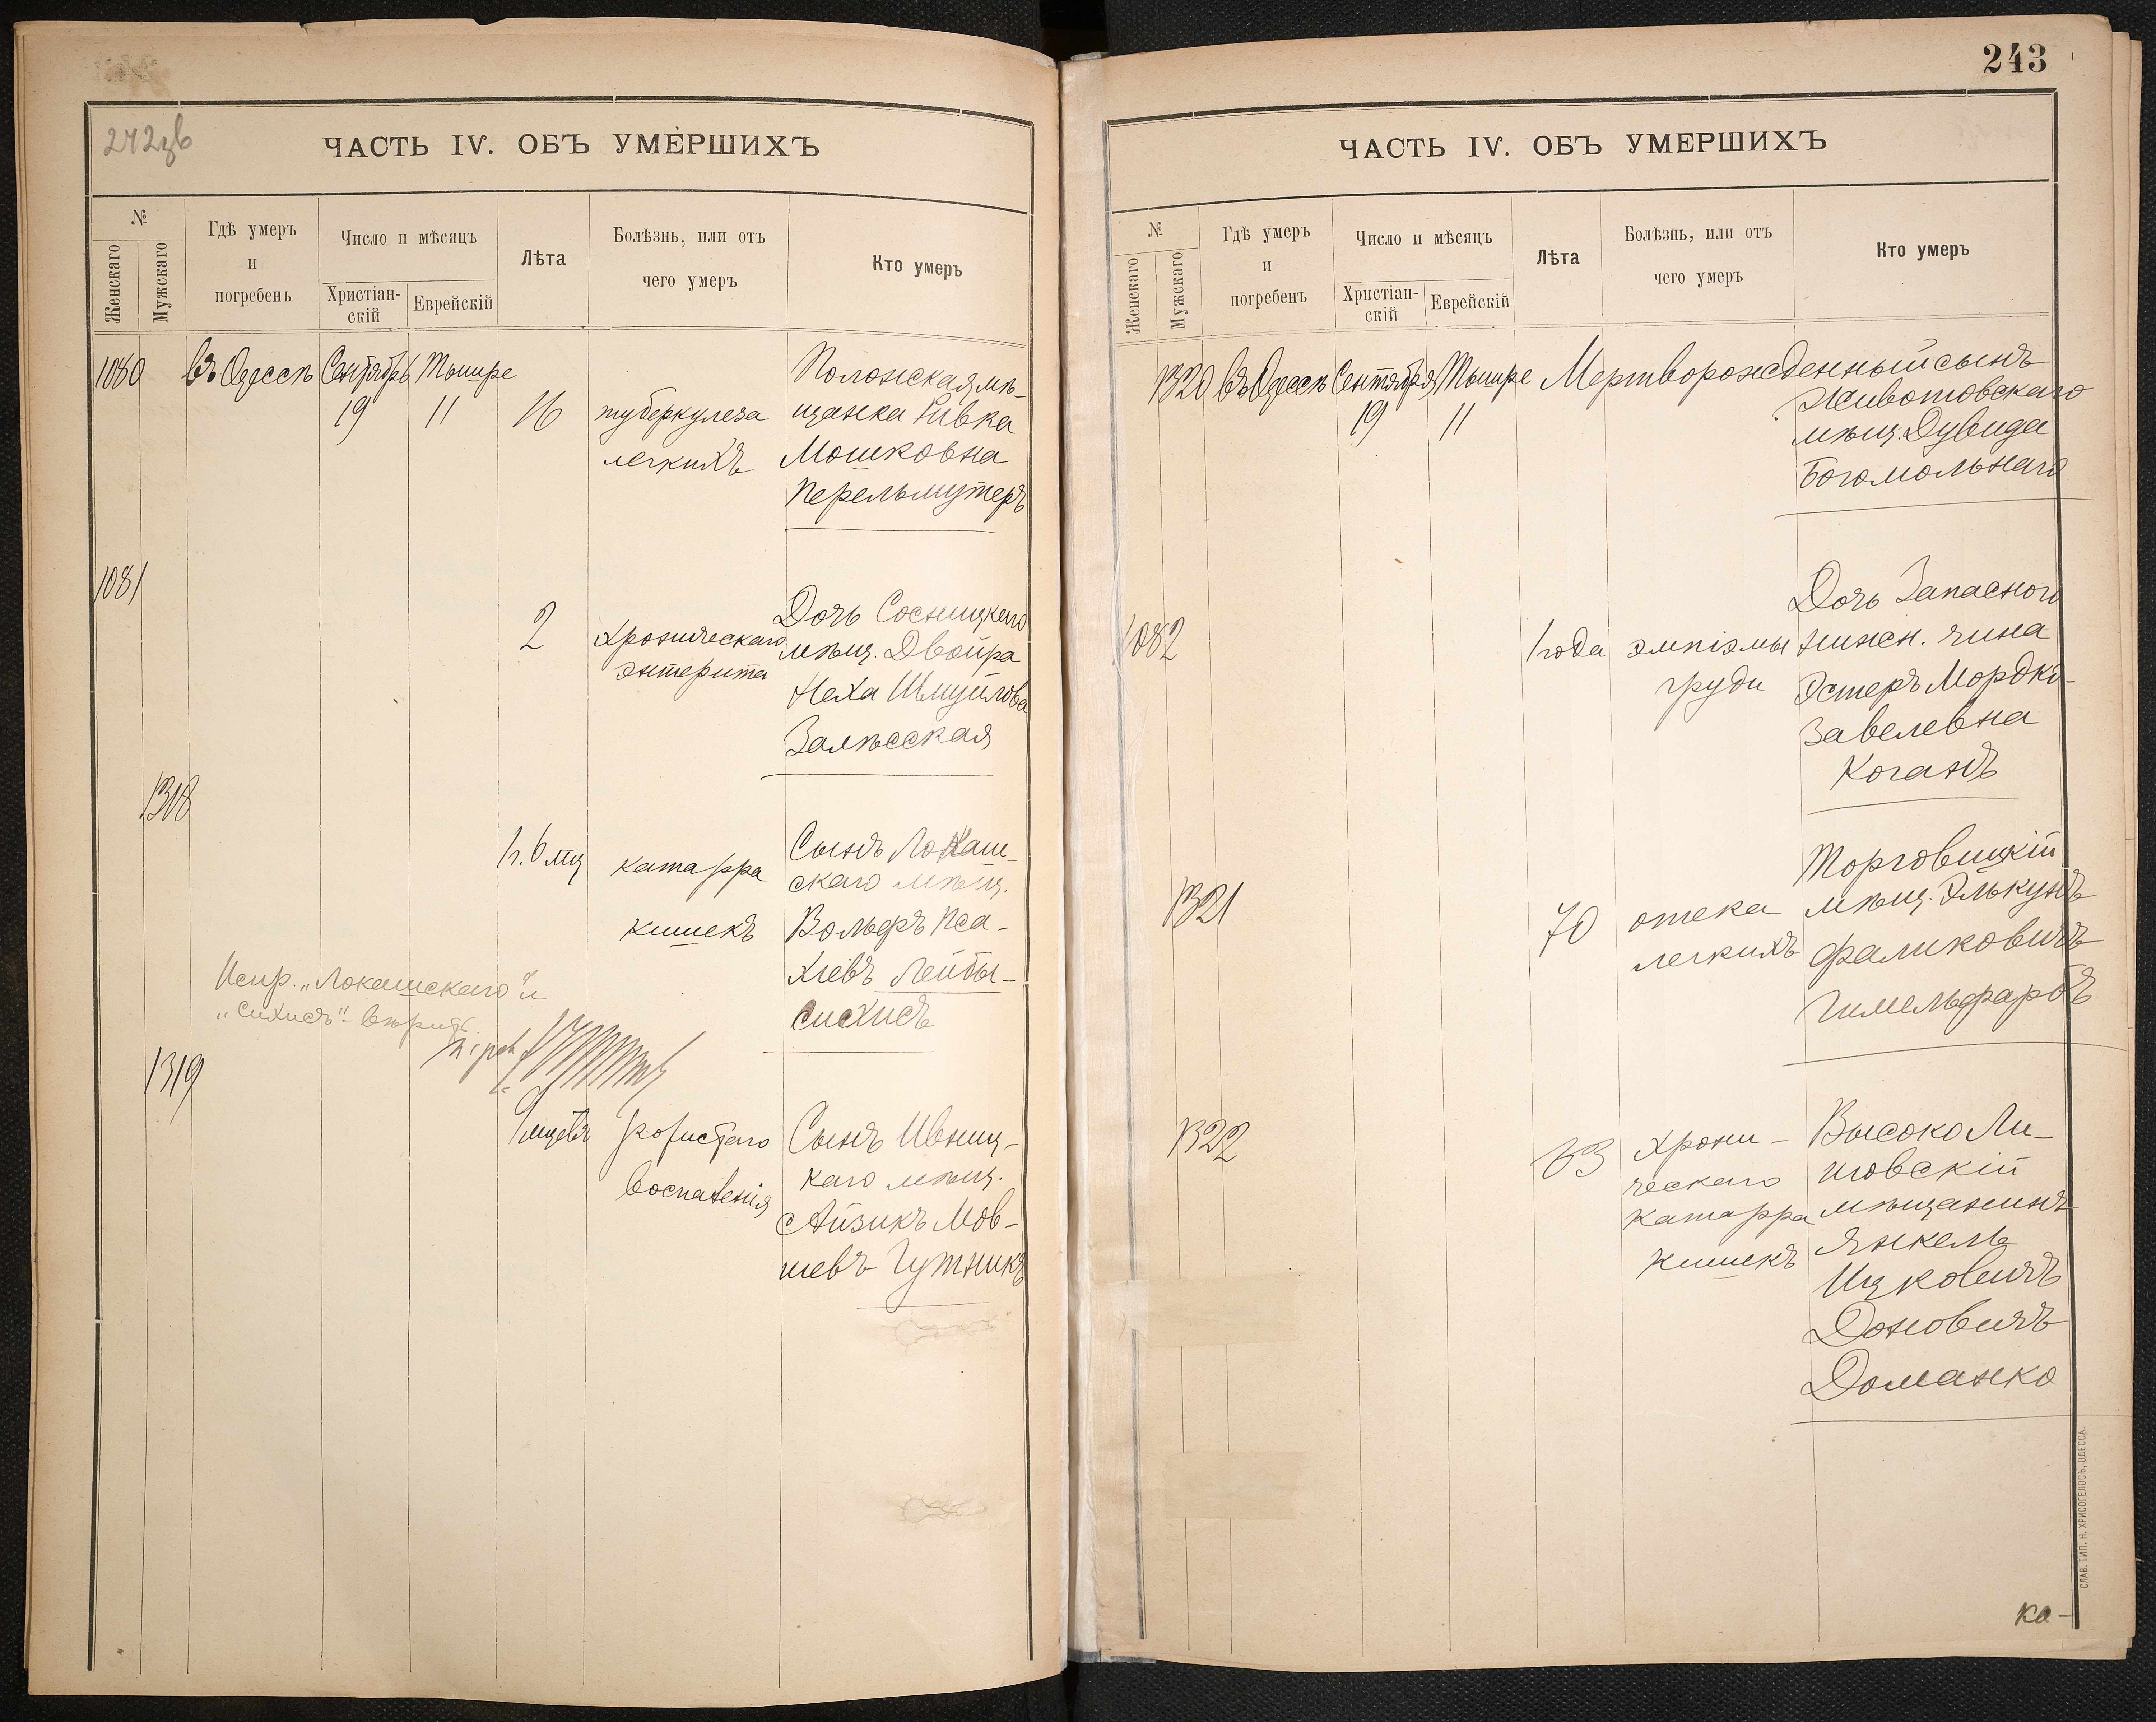 242зв
ЧАСТЬ IV. ОБЪ УМЕРШИХЪ
№
Женскаго
Мужскаго
Гдѣ умеръ
и
погребенъ
Число и мѣсяцъ
Христіан-
скій
Еврейскій
Лѣта
Болѣзнь, или отъ
чего умеръ
Кто умеръ
1080 въ Одессѣ Сентябрь Тышре
19 11 16
туберкулеза
легкихъ
Полонская мѣ-
щанка Ривка
Мошковна
Перельмутеръ
1081
2
хроническаго
энтерита
Дочь Сосницкаго
мѣщ. Двойра
Неха Шмуйлова
Залѣсская
1318
1г. 6 мц
катарра
кишекъ
Сынъ Локаш-
скаго мѣщ.
Вольфъ Иса-
кіевъ Лейбы-
сисхисъ
Испр. „Локашскаго" и
„сихисъ" - вѣрить.
1319
9 мцевъ
воспаленія
Сынъ Ивниц-
каго мѣщ.
Айзикъ Мов-
шевъ Гутникъ
243
ЧАСТЬ IV. ОБЪ УМЕРШИХЪ
№
Женскаго
Мужскаго
Гдѣ умеръ
и
погребенъ
Число и мѣсяцъ
Христіан-
скій
Еврейскій
Лѣта
Болѣзнь, или отъ
чего умеръ
Кто умеръ
1320 въ Одессѣ Сентября Тышре
19 11
Мертворожденный сынъ
Животовскаго
мѣщ. Дувида
Богомольнаго
1082
1 года
эмпіэмы
груди
Дочь Запаснаго
нижн. чина
Эстеръ Мордко-
Завелевна
Коганъ
1321
70
отека
легкихъ
Торговицкій
мѣщ. Элькунъ
Фаликовичъ
Гимельфарбъ
1322
63
хрони-
ческаго
катарра
кишекъ
Высоко Ли-
товскій
мѣщанинъ
Янкель
Ицковичъ
Доновичъ
Доманко
СЛАВ. ТИП. Н. ХРИСОГЕЛОСЪ, ОДЕССА.
ка-